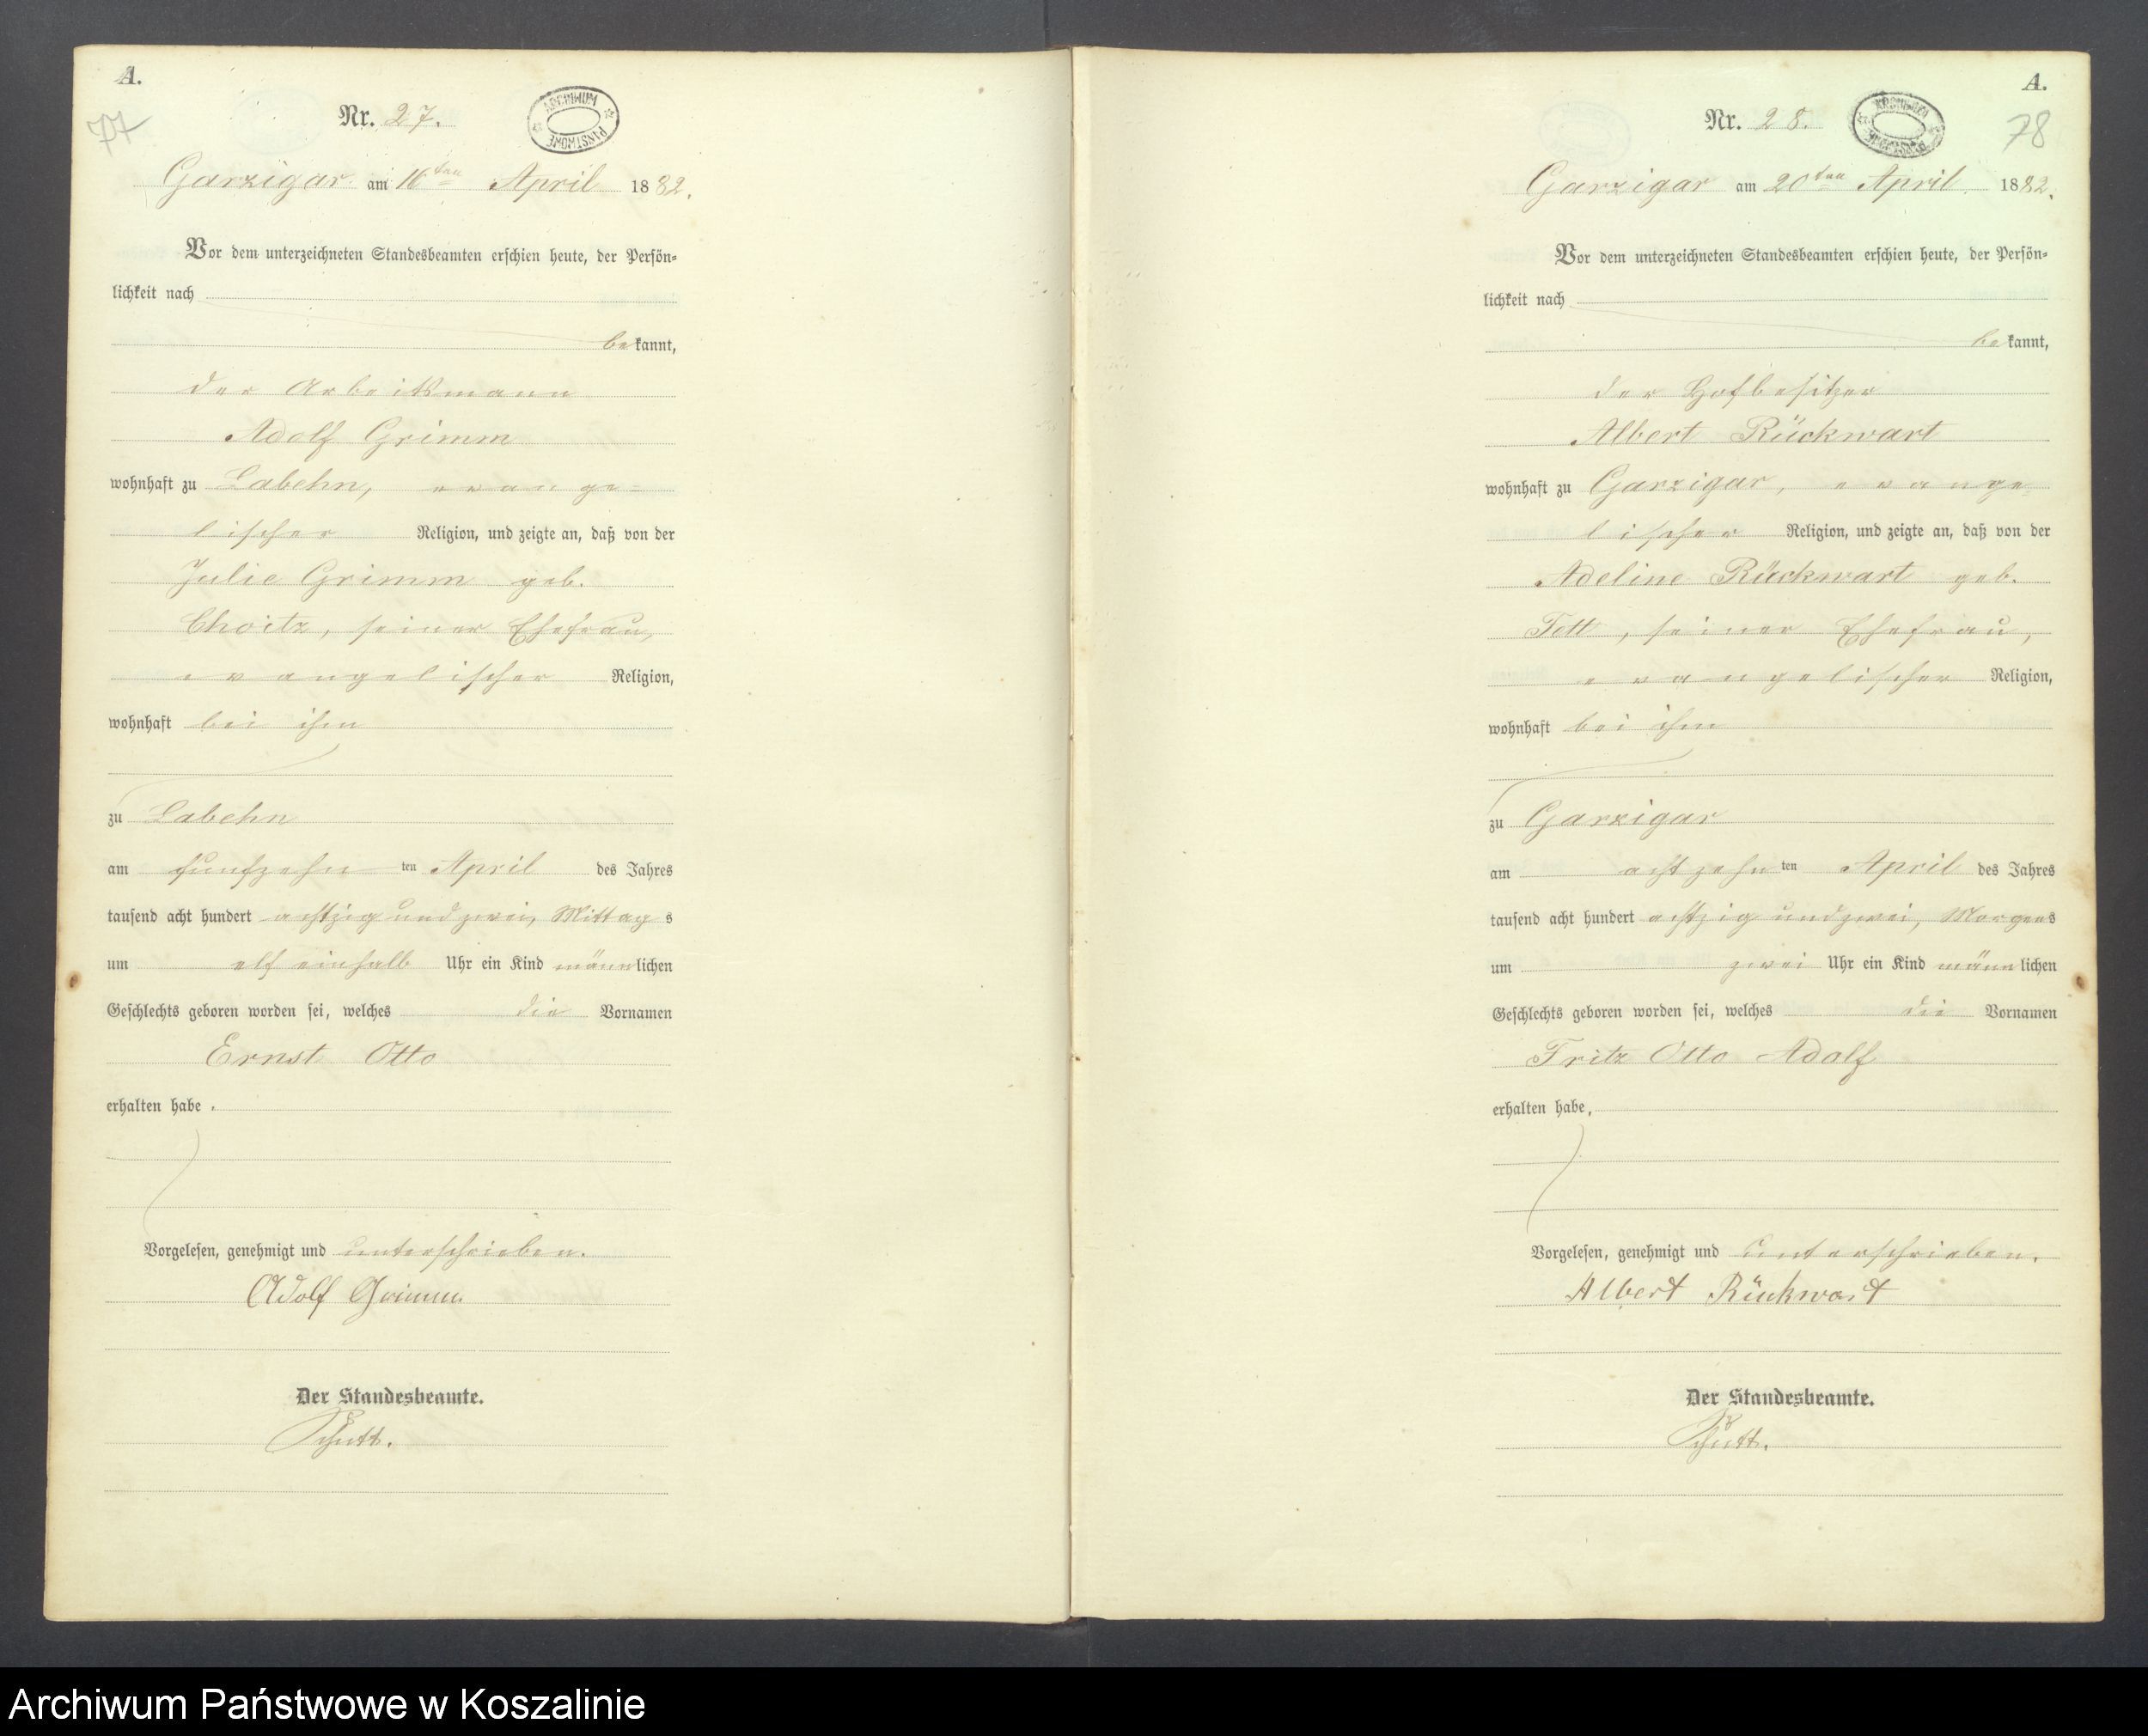 A.
77
Nr. 27.
ARCHIWUM PAŃSTWOWE
Garzigar am 16ten April 1882.
Vor dem unterzeichneten Standesbeamten erschien heute, der Persön-
lichkeit nach
bekannt,
der Arbeitsmann
Adolf Grimm
wohnhaft zu Labehn, evange-
lischer Religion, und zeigte an, daß von der
Julie Grimm geb.
Choitz, seiner Ehefrau,
evangelischer Religion,
wohnhaft bei ihm
zu Labehn
am funfzehn ten April des Jahres
tausend acht hundert achtzig und zwei, Mittags
um elf einhalb Uhr ein Kind männlichen
Geschlechts geboren worden sei, welches die Vornamen
Ernst Otto
erhalten habe.
Vorgelesen, genehmigt und unterschrieben.
Adolf Grimm
Der Standesbeamte.
Schütt.
A.
78
Nr. 28.
ARCHIWUM PAŃSTWOWE
Garzigar am 20ten April 1882.
Vor dem unterzeichneten Standesbeamten erschien heute, der Persön-
lichkeit nach
bekannt,
der Hofbesitzer
Albert Rückwart
wohnhaft zu Garzigar, evange-
lischer Religion, und zeigte an, daß von der
Adeline Rückwart geb.
Tett, seiner Ehefrau,
evangelischer Religion,
wohnhaft bei ihm
zu Garzigar
am achtzehn ten April des Jahres
tausend acht hundert achtzig und zwei, Morgens
um zwei Uhr ein Kind männlichen
Geschlechts geboren worden sei, welches die Vornamen
Fritz Otto Adolf
erhalten habe.
Vorgelesen, genehmigt und unterschrieben.
Albert Rückwart
Der Standesbeamte.
Schütt.
Archiwum Państwowe w Koszalinie